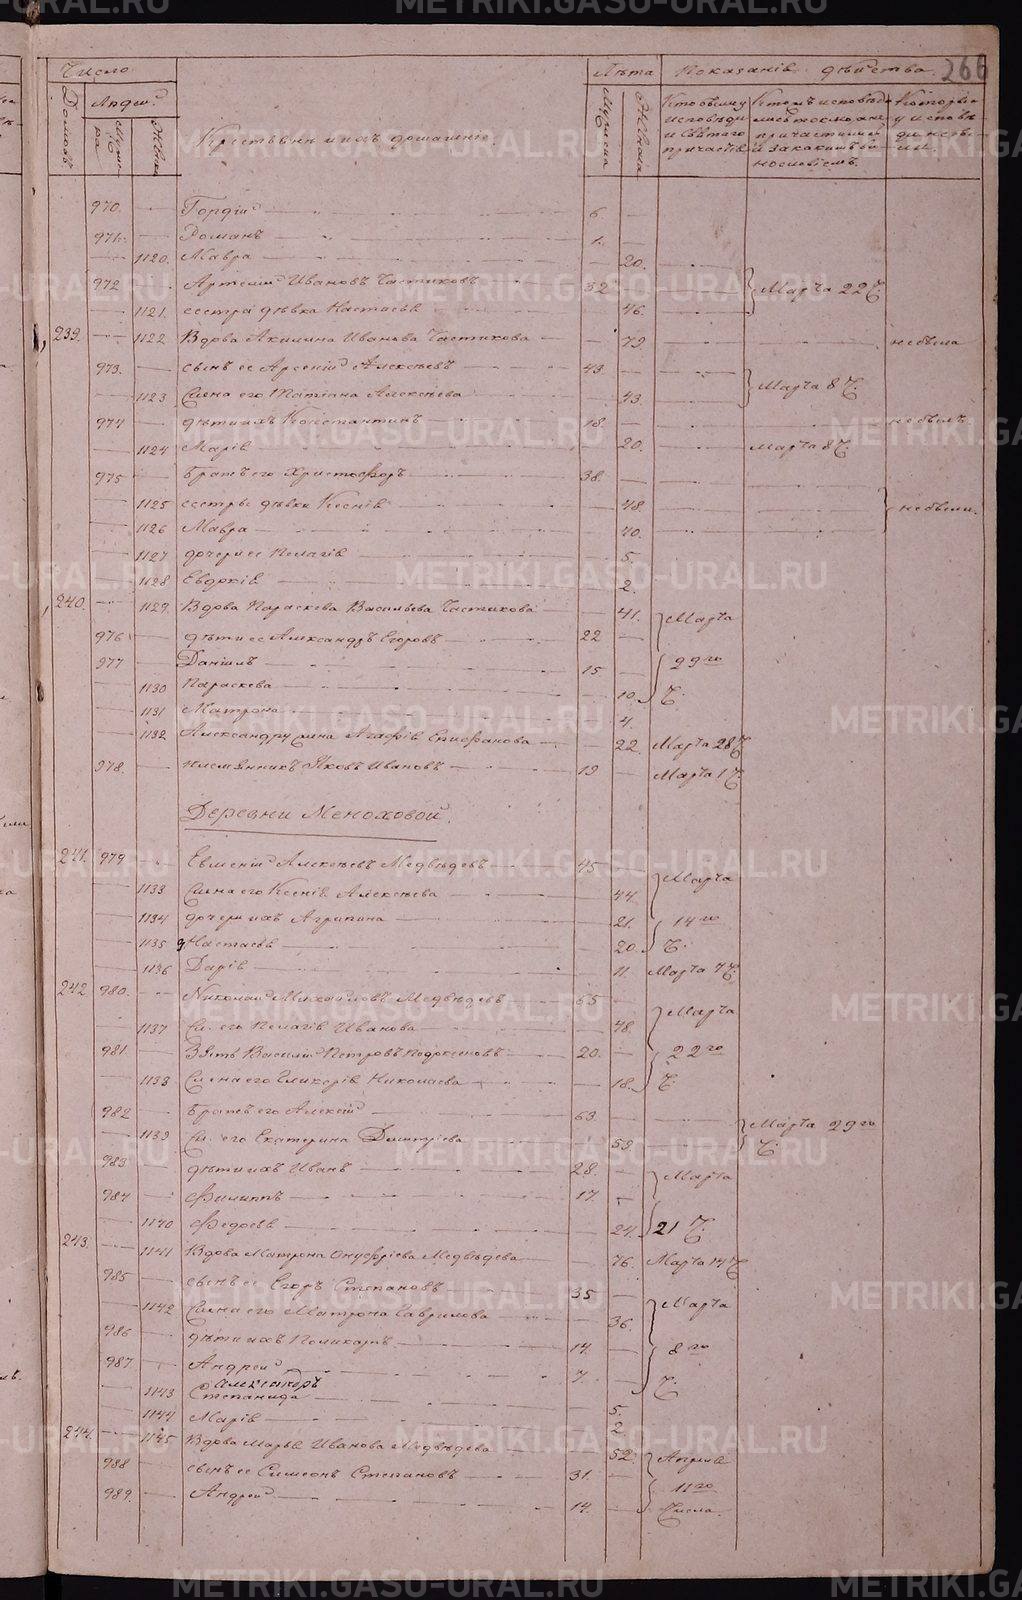 266
Число
Лѣта
Показаніе дѣйства.
Домовъ.
Людей
Мужеска
Женска
Крестьяне и ихъ домашніе.
970. Гордій 6.
971. Романъ 1.
1120. Мавра 20.
972 Артемій Ивановъ Частиковъ 52. Марта 22 Ч.
1121. сестра дѣвка Настасья 46.
239. 1122 Вдова Акилина Иванова Частикова 79. не была
973. сынъ ее Арсеній Алексѣевъ 43. Марта 8 Ч.
1123 Жена его Татіана Алексѣева 43.
974 дѣти ихъ Константинъ 18. не былъ.
1124 Марія 20. Марта 8 Ч.
975 Братъ его Христофоръ 38.
1125 сестры дѣвки Ксенія 48. не были.
1126 Мавра 40.
1127 дочери ее Пелагія 5.
1128 Евдокія 2.
240. 1129. Вдова Параскева Васильева Частикова 41. Марта
976 дѣти ее Александръ Егоровъ 22
977 Даніилъ 15 29го
1130 Параскева 10. Ч.
1131 Матрона 4.
1132 Александру жена Агафія Епифанова 22. Марта 28 Ч.
978. племянникъ Яковъ Ивановъ 19 Марта 1 Ч.
Деревни Меноховой.
241. 979 Евгеній Алексѣевъ Медвѣдевъ 45 Марта
1133 Жена его Ксенія Алексѣева 44.
1134 дочери ихъ Агрипина 21. 14го
1135 Настасья 20. Ч.
1136 Дарія 11. Марта 7 Ч.
242. 980. Николай Михайловъ Медвѣдевъ 65 Марта
1137 Ж. его Пелагія Иванова 48.
981 Зять Василій Петровъ 20. 22го
1138 Жена его Гликерія Николаева 18. Ч.
982 Братъ его Алексій 63 Марта 29го
1139 Ж. его Екатерина Димитріева 53 Ч.
983. дѣти ихъ Иванъ 28. Марта
984 Филиппъ 17.
1140 Федосья 24. 21 Ч.
243. 1141 Вдова Матрона Онуфріева Медвѣдева 76. Марта 14 Ч.
985 сынъ ее Егоръ Степановъ 35 Марта
1142 Жена его Матрона Гаврилова 36.
986 дѣти ихъ Поликарпъ 14. 8го
987. Андрей 7. Ч.
Александръ
1143 Степанида 5.
1144 Марія 2.
244. 1145 Вдова Марья Иванова Медвѣдева 52. Апрѣля
988 сынъ ее Симеонъ Степановъ 31. 11го
989. Андрей 14. Числа.
METRIKI.GASO-URAL.RU